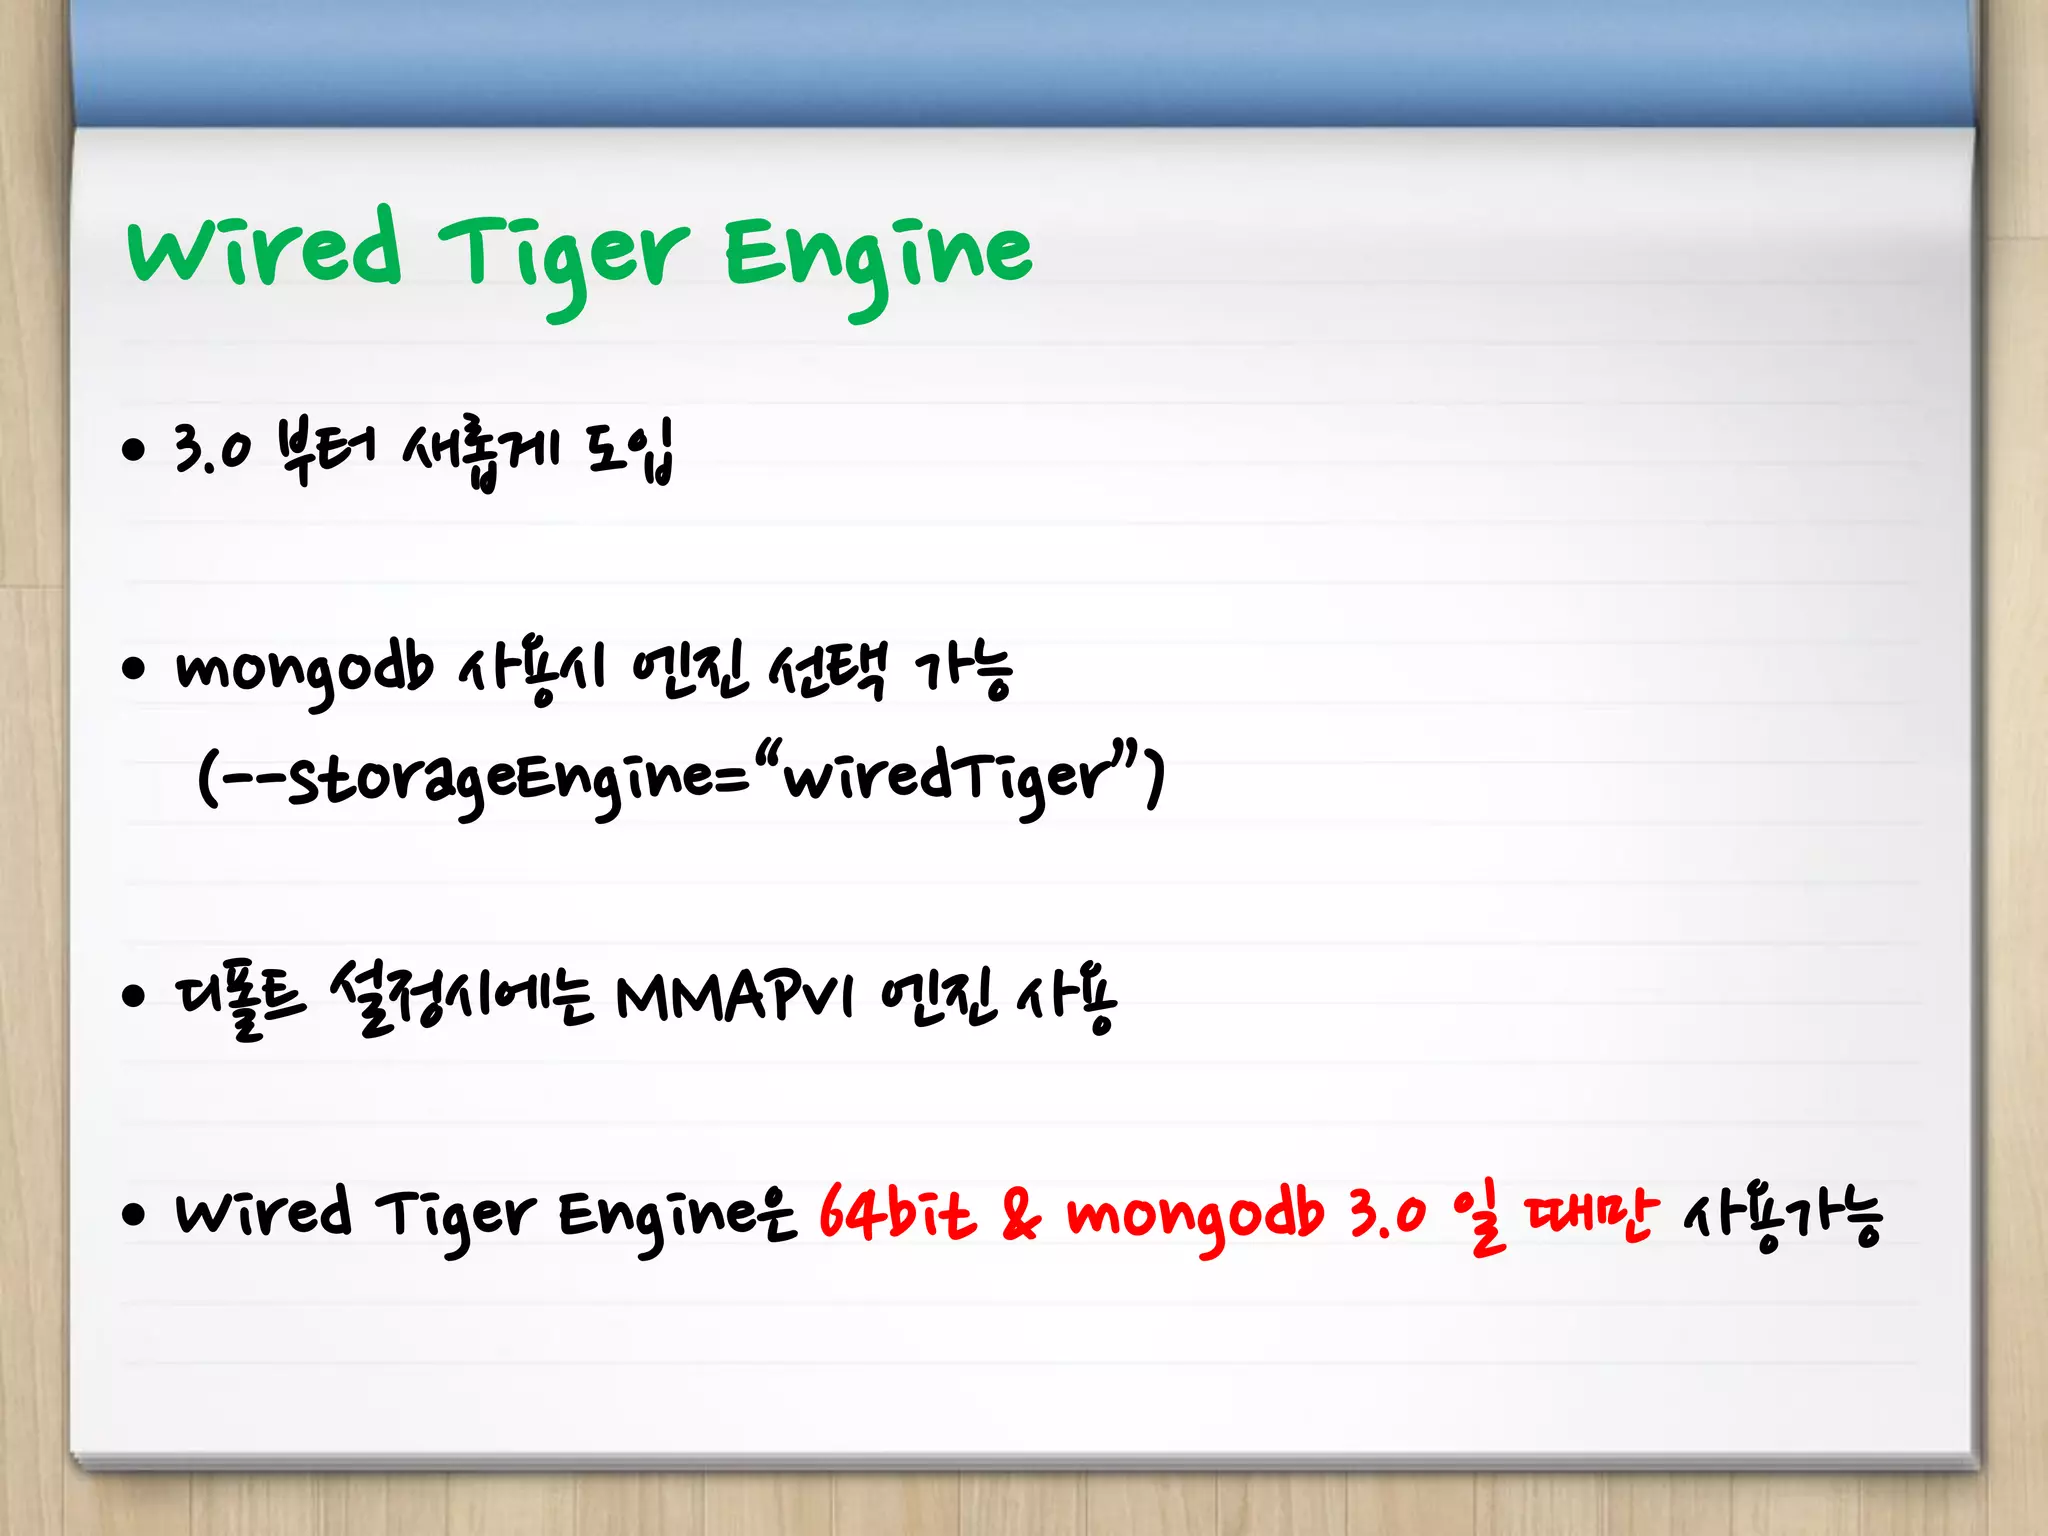 Wired Tiger Engine
• 3.0 부터 새롭게 도입
• mongodb 사용시 엔진 선택 가능
(--storageEngine=“wiredTiger”)
• 디폴트 설정시에는 MMAPV1 엔진 사용
• Wired Tiger Engine은 64bit & mongodb 3.0 일 때만 사용가능